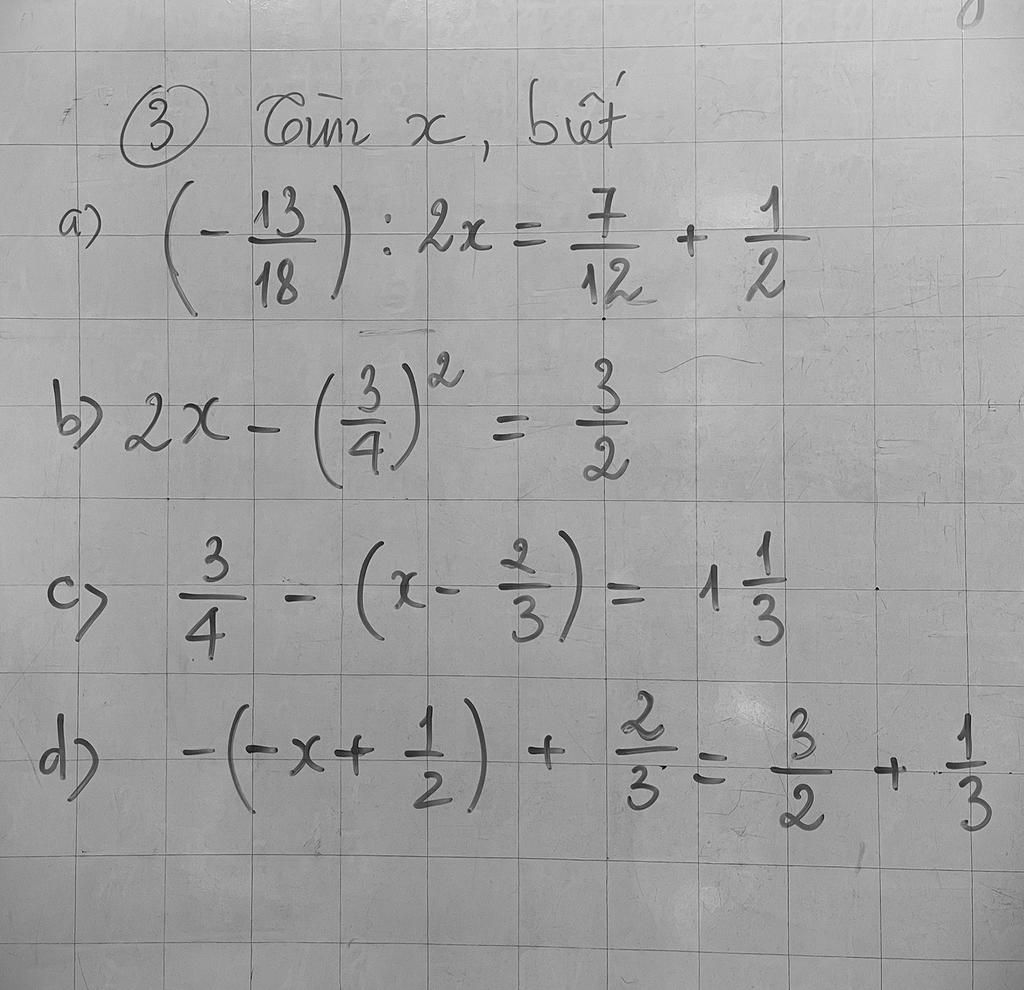 ③ Tìm x, biết
a) (- 13/18) : 2x = 7/12 + 1/2
b) 2x - (3/4)² = 3/2
c) 3/4 - (x - 2/3) = 1 1/3
d) -(-x + 1/2) + 2/3 = 3/2 + 1/3